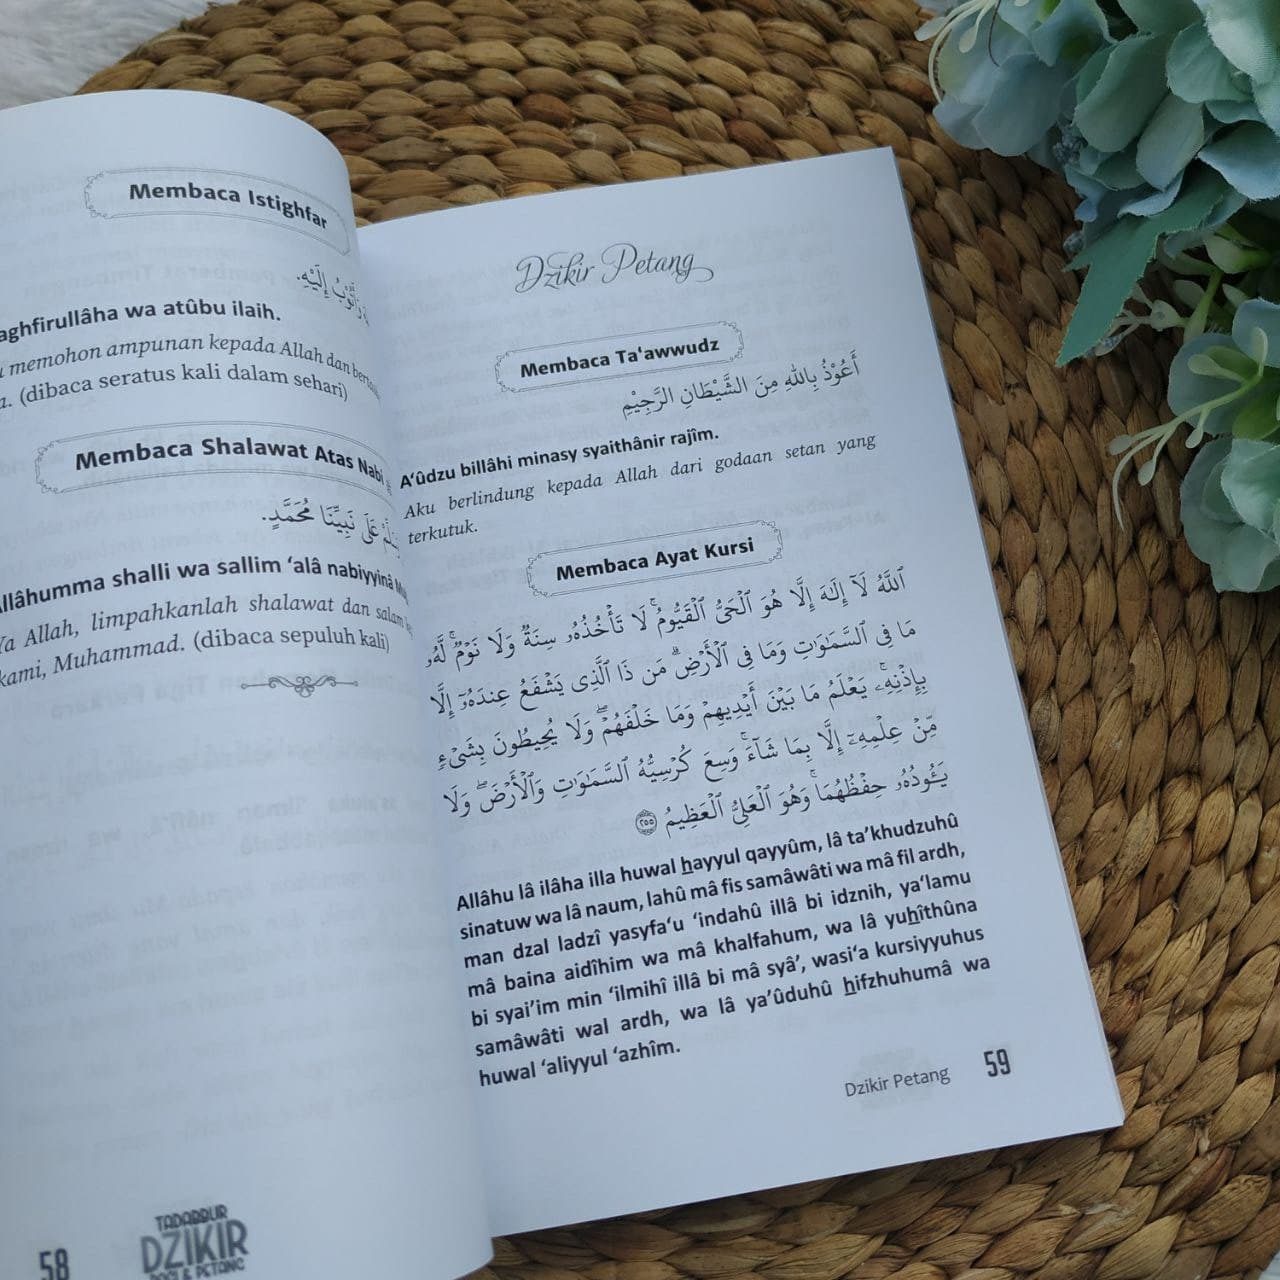 Membaca Istighfar
وَأَتُوْبُ إِلَيْهِ.
aghfirullâha wa atûbu ilaih.
memohon ampunan kepada Allah dan
(dibaca seratus kali dalam sehari)
Membaca Shalawat Atas Nabi ﷺ
عَلَى نَبِيِّنَا مُحَمَّدٍ.
Allâhumma shalli wa sallim ‘alâ nabiyyinâ
Ya Allah, limpahkanlah shalawat dan salam
kami, Muhammad. (dibaca sepuluh kali)
58
TADABBUR
DZIKIR
PAGI & PETANG
Dzikir Petang
Membaca Ta‘awwudz
أَعُوْذُ بِاللهِ مِنَ الشَّيْطَانِ الرَّجِيْمِ
A‘ûdzu billâhi minasy syaithânir rajîm.
Aku berlindung kepada Allah dari godaan setan yang
terkutuk.
Membaca Ayat Kursi
ٱللَّهُ لَآ إِلَٰهَ إِلَّا هُوَ ٱلْحَىُّ ٱلْقَيُّومُ ۚ لَا تَأْخُذُهُۥ سِنَةٌ وَلَا نَوْمٌ ۚ لَّهُۥ
مَا فِى ٱلسَّمَٰوَٰتِ وَمَا فِى ٱلْأَرْضِ ۗ مَن ذَا ٱلَّذِى يَشْفَعُ عِندَهُۥٓ إِلَّا
بِإِذْنِهِۦ ۚ يَعْلَمُ مَا بَيْنَ أَيْدِيهِمْ وَمَا خَلْفَهُمْ ۖ وَلَا يُحِيطُونَ بِشَىْءٍ
مِّنْ عِلْمِهِۦٓ إِلَّا بِمَا شَآءَ ۚ وَسِعَ كُرْسِيُّهُ ٱلسَّمَٰوَٰتِ وَٱلْأَرْضَ ۖ وَلَا
يَـُٔودُهُۥ حِفْظُهُمَا ۚ وَهُوَ ٱلْعَلِىُّ ٱلْعَظِيمُ ٢٥٥
Allâhu lâ ilâha illa huwal hayyul qayyûm, lâ ta’khudzuhû
sinatuw wa lâ naum, lahû mâ fis samâwâti wa mâ fil ardh,
man dzal ladzî yasyfa‘u ‘indahû illâ bi idznih, ya‘lamu
mâ baina aidîhim wa mâ khalfahum, wa lâ yuhîthûna
bi syai’im min ‘ilmihî illâ bi mâ syâ’, wasi‘a kursiyyuhus
samâwâti wal ardh, wa lâ ya’ûduhû hifzhuhumâ wa
huwal ‘aliyyul ‘azhîm.
Dzikir Petang 59